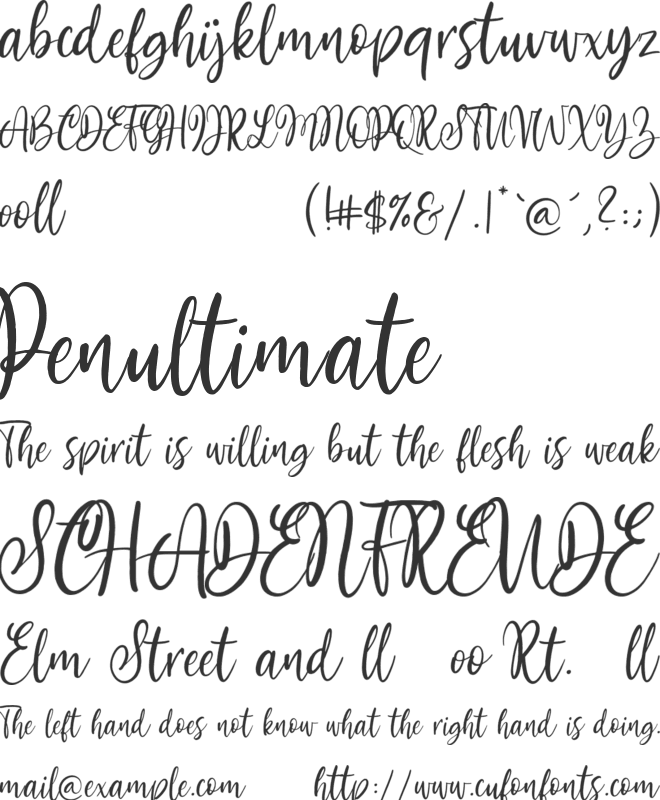 abcdefghijklmnopqrstuvwxyz
ABCDEFGHIJKLMNOPQRSTUVWXYZ
ooll (!#$%&/.|*`@´,?:;)
Penultimate
The spirit is willing but the flesh is weak
SCHADENFREUDE
Elm Street and ll oo Rt. ll
The left hand does not know what the right hand is doing.
mail@example.com http://www.cufonfonts.com